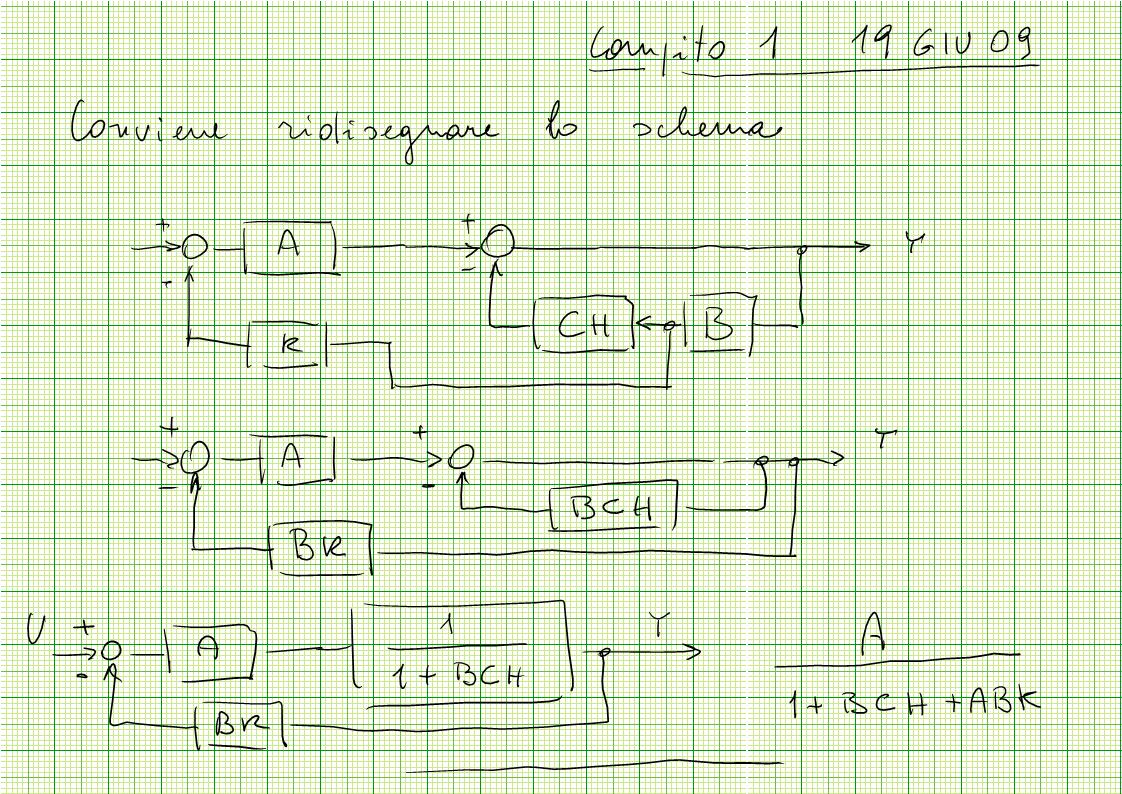 Compito 1 19 GIU 09
Conviene ridisegnare lo schema
+ A + Y
- -
CH B
K
+ A + Y
- -
BCH
BK
U + A 1 Y A
- 1 + BCH 1 + BCH + ABK
BK